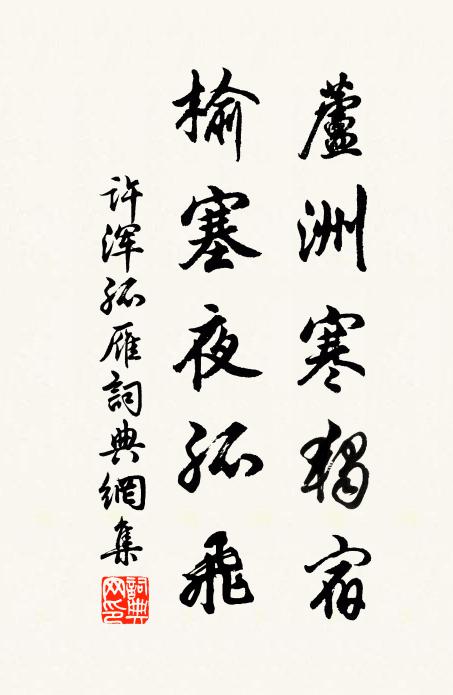 蘆洲寒獨宿
榆塞夜孤飛
许浑孤雁詞典網集
詞典网印